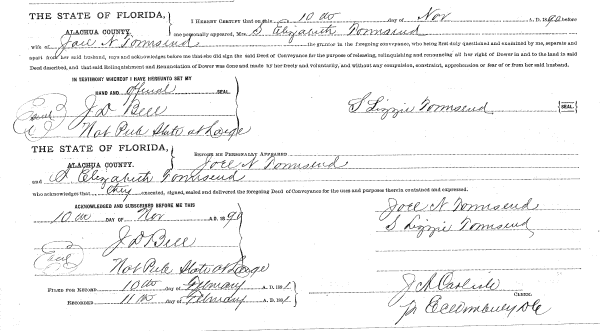 THE STATE OF FLORIDA,
ALACHUA COUNTY.
I HEREBY CERTIFY that on this 10 th day of Nov A. D. 1890 before
me personally appeared, Mrs. S. Elizabeth Townsend
wife of Joel N Townsend the grantor in the foregoing conveyance, who being first duly questioned and examined by me, separate and
apart from her said husband, says and acknowledges before me that she did sign the said Deed of Conveyance for the purpose of releasing, relinquishing and renouncing all her right of Dower in and to the land in said
Deed described, and that said Relinquishment and Renunciation of Dower was done and made by her freely and voluntarily, and without any compulsion, constraint, apprehension or fear of or from her said husband.
IN TESTIMONY WHEREOF I HAVE HEREUNTO SET MY
HAND AND official SEAL
Seal J D Bell
Not Pub State at Large
S Lizzie Townsend SEAL
THE STATE OF FLORIDA,
ALACHUA COUNTY.
BEFORE ME PERSONALLY APPEARED Joel N Townsend
and S. Elizabeth Townsend
who acknowledges that they executed, signed, sealed and delivered the foregoing Deed of Conveyance for the uses and purpose therein contained and expressed.
ACKNOWLEDGED AND SUBSCRIBED BEFORE ME THIS
10 th DAY OF Nov A. D. 1890
Joel N Townsend
S Lizzie Townsend
Seal J D Bell
Not Pub State at Large
FILED FOR RECORD 10 th day of February A. D. 1891
RECORDED 11 th day of February A. D. 1891
J A Carlisle
CLERK.
DC